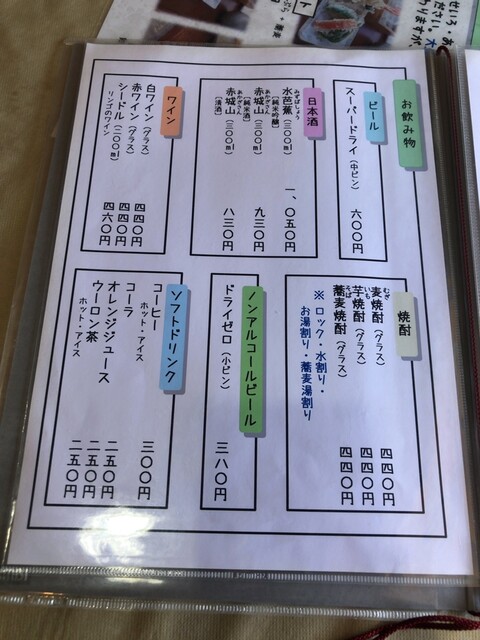 お飲み物
ビール
スーパードライ（中ビン） 六〇〇円
日本酒
水芭蕉（三〇〇ml） 一、〇五〇円
みずばしょう
［純米吟醸］
赤城山（三〇〇ml） 九三〇円
あかぎさん
［純米酒］
赤城山（三〇〇ml） 八三〇円
あかぎさん
［清酒］
ワイン
白ワイン（グラス） 四四〇円
赤ワイン（グラス） 四四〇円
シードル（二〇〇ml） 四六〇円
リンゴのワイン
焼酎
麦焼酎（グラス） 四四〇円
むぎ
芋焼酎（グラス） 四四〇円
いも
蕎麦焼酎（グラス） 四四〇円
そば
※ロック・水割り・
お湯割り・蕎麦湯割り
ノンアルコールビール
ドライゼロ（小ビン） 三八〇円
ソフトドリンク
コーヒー 三〇〇円
ホット・アイス
コーラ 二五〇円
オレンジジュース 二五〇円
ウーロン茶 二五〇円
ホット・アイス